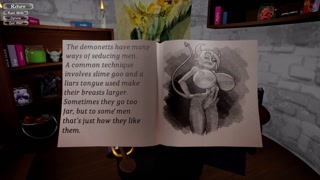 Return
The demonetts have many
ways of seducing men.
A common technique
involves slime goo and a
liars tongue used make
their breasts larger.
Sometimes they go too
far, but to some men
that's just how they like
them.